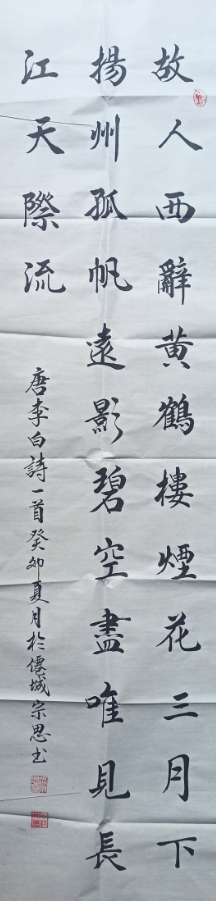 故人西辭黄鶴樓煙花三月下
揚州孤帆遠影碧空盡唯見長
江天際流
唐李白詩一首癸卯夏月於僊城宗思书